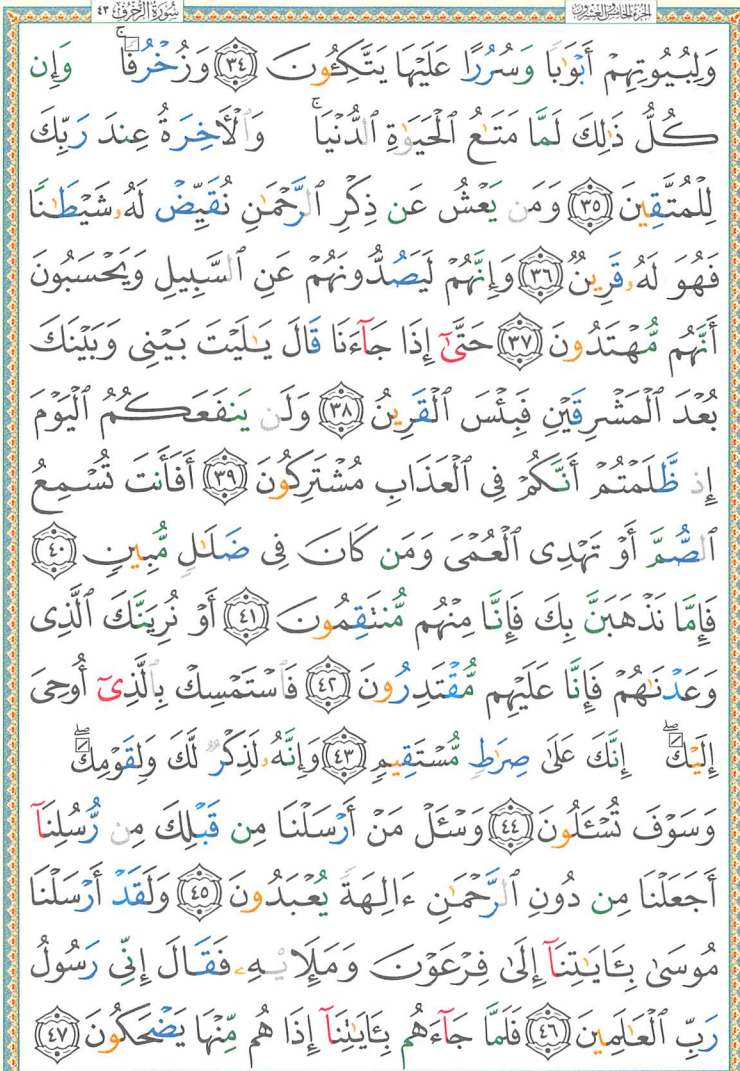 الجزء الخامس والعشرون سُورَةُ الزُّخْرُفِ ٤٣
وَلِبُيُوتِهِمْ أَبْوَٰبًا وَسُرُرًا عَلَيْهَا يَتَّكِـُٔونَ ٣٤ وَزُخْرُفًا ۚ وَإِن
كُلُّ ذَٰلِكَ لَمَّا مَتَـٰعُ ٱلْحَيَوٰةِ ٱلدُّنْيَا ۚ وَٱلْـَٔاخِرَةُ عِندَ رَبِّكَ
لِلْمُتَّقِينَ ٣٥ وَمَن يَعْشُ عَن ذِكْرِ ٱلرَّحْمَـٰنِ نُقَيِّضْ لَهُۥ شَيْطَـٰنًا
فَهُوَ لَهُۥ قَرِينٌ ٣٦ وَإِنَّهُمْ لَيَصُدُّونَهُمْ عَنِ ٱلسَّبِيلِ وَيَحْسَبُونَ
أَنَّهُم مُّهْتَدُونَ ٣٧ حَتَّىٰٓ إِذَا جَآءَنَا قَالَ يَـٰلَيْتَ بَيْنِى وَبَيْنَكَ
بُعْدَ ٱلْمَشْرِقَيْنِ فَبِئْسَ ٱلْقَرِينُ ٣٨ وَلَن يَنفَعَكُمُ ٱلْيَوْمَ
إِذ ظَّلَمْتُمْ أَنَّكُمْ فِى ٱلْعَذَابِ مُشْتَرِكُونَ ٣٩ أَفَأَنتَ تُسْمِعُ
ٱلصُّمَّ أَوْ تَهْدِى ٱلْعُمْىَ وَمَن كَانَ فِى ضَلَـٰلٍ مُّبِينٍ ٤٠
فَإِمَّا نَذْهَبَنَّ بِكَ فَإِنَّا مِنْهُم مُّنتَقِمُونَ ٤١ أَوْ نُرِيَنَّكَ ٱلَّذِى
وَعَدْنَـٰهُمْ فَإِنَّا عَلَيْهِم مُّقْتَدِرُونَ ٤٢ فَٱسْتَمْسِكْ بِٱلَّذِىٓ أُوحِىَ
إِلَيْكَ ۖ إِنَّكَ عَلَىٰ صِرَٰطٍ مُّسْتَقِيمٍ ٤٣ وَإِنَّهُۥ لَذِكْرٌ لَّكَ وَلِقَوْمِكَ ۖ
وَسَوْفَ تُسْـَٔلُونَ ٤٤ وَسْـَٔلْ مَنْ أَرْسَلْنَا مِن قَبْلِكَ مِن رُّسُلِنَآ
أَجَعَلْنَا مِن دُونِ ٱلرَّحْمَـٰنِ ءَالِهَةً يُعْبَدُونَ ٤٥ وَلَقَدْ أَرْسَلْنَا
مُوسَىٰ بِـَٔايَـٰتِنَآ إِلَىٰ فِرْعَوْنَ وَمَلَإِي۟هِۦ فَقَالَ إِنِّى رَسُولُ
رَبِّ ٱلْعَـٰلَمِينَ ٤٦ فَلَمَّا جَآءَهُم بِـَٔايَـٰتِنَآ إِذَا هُم مِّنْهَا يَضْحَكُونَ ٤٧